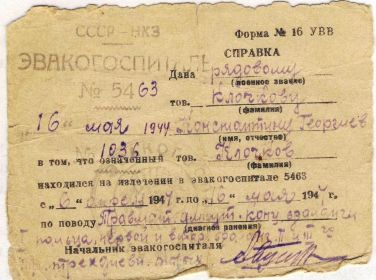 СССР-НКЗ
Форма № 16 УВВ
ЭВАКОГОСПИТАЛЬ
СПРАВКА
№ 5463
Дана рядовому
(военное звание)
тов. Клочкову
(фамилия)
16" мая 1944 Константину Георгиев
(имя, отчество)
№ 1036
в том, что означенный тов. Клочков
(фамилия)
находился на излечении в эвакогоспитале 5463
с "6" апреля 1944 г. по "16" мая 194
по поводу
(диагноз ранения)
пальца, первой и
Начальник эвакогоспиталя